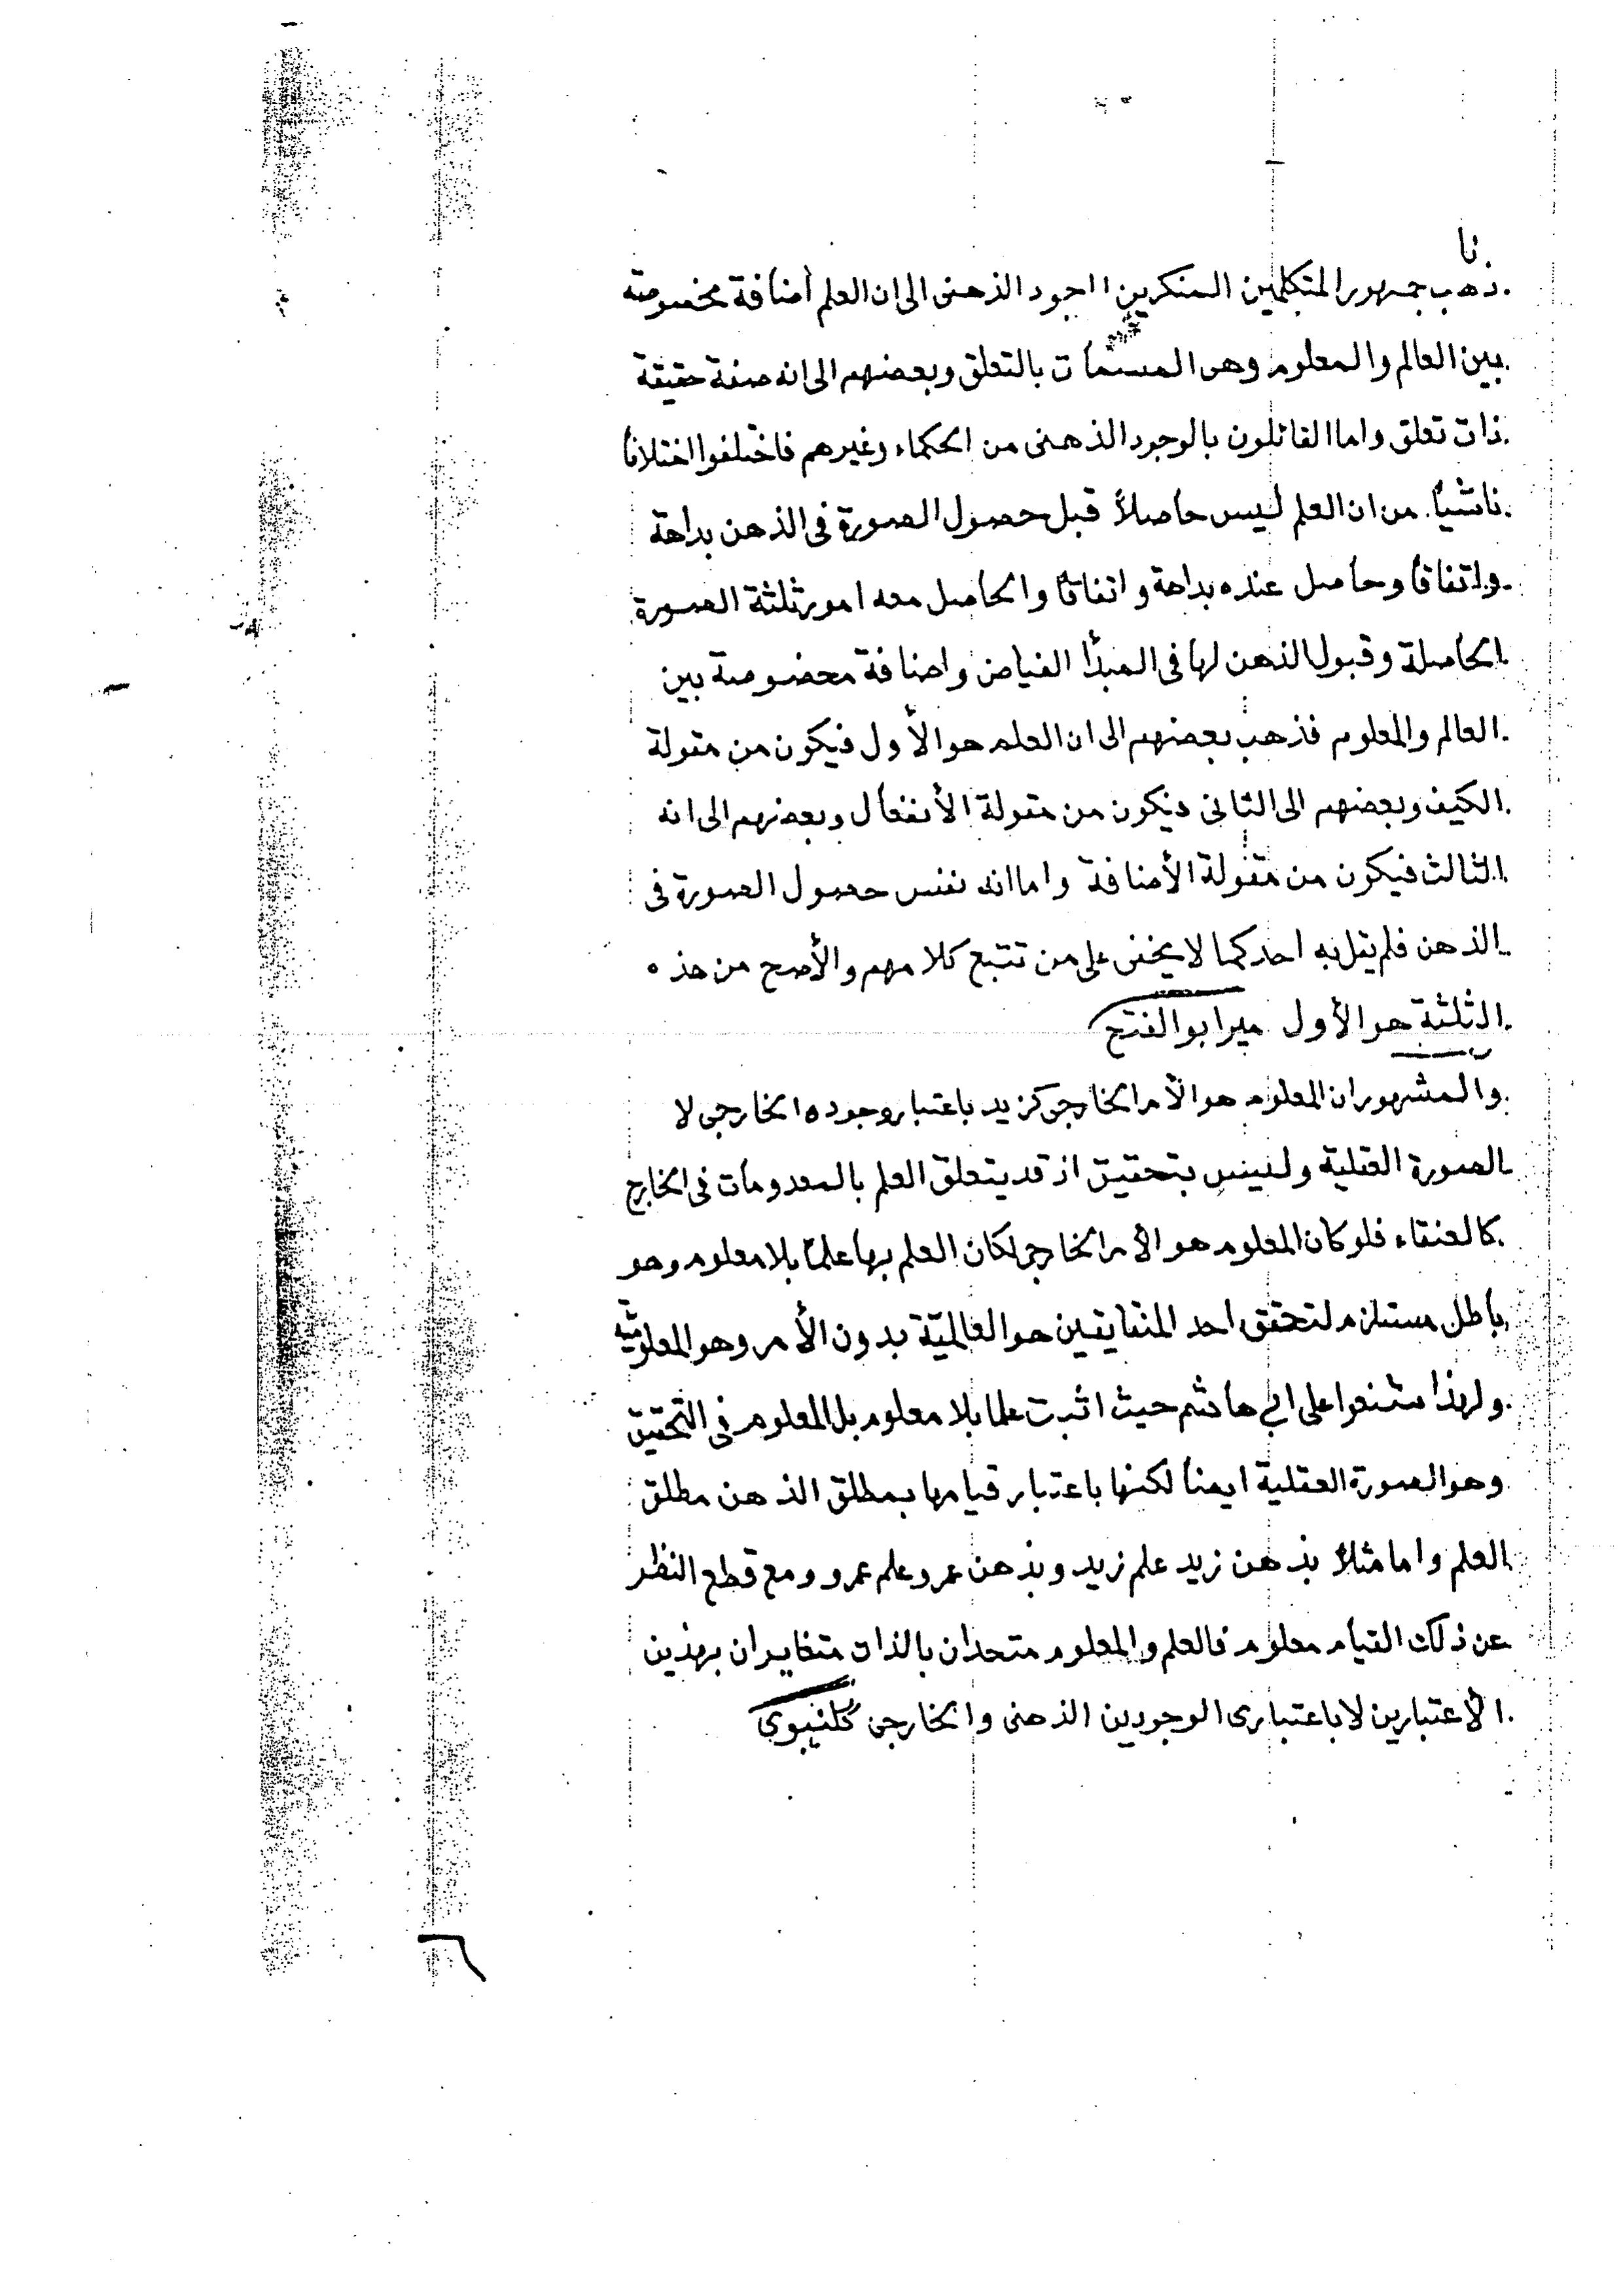 نا
ذهب جمهور المتكلمين المنكرين ااجود الذهنى الى ان العلم أضافة مخصوصة
بين العالم والمعلوم وهى المسمات بالتعلق وبعضهم الى انه صفة حقيقة
ذات تعلق واما القائلون بالوجود الذهنى من الحكماء وغيرهم فاختلفوا اختلافا
ناشئا من ان العلم ليس حاصلاً قبل حصول الصورة فى الذهن بداهة
واتفاقا وحاصل عنده بداهة واتفاقا والحاصل معه امور ثلثة الصورة
الحاصلة وقبول الذهن لها فى المبدأ الفياض واضافة مخصوصة بين
العالم والمعلوم فذهب بعضهم الى ان العلم هو الأول فيكون من مقولة
الكيف وبعضهم الى الثانى فيكون من مقولة الأنفعال وبعضهم الى انه
الثالث فيكون من مقولة الأضافة واما انه نفس حصول الصورة فى
الذهن فلم يقل به احد كما لا يخفى على من تتبع كلامهم والأصح من هذه
الثلثة هو الأول ميرابوالفتح
والمشهور ان المعلوم هو الأمر الخارجى كزيد باعتبار وجوده الخارجى لا
الصورة العقلية وليس بتحقيق اذ قد يتعلق العلم بالمعدومات فى الخارج
كالعنقاء فلو كان المعلوم هو الأمر الخارجى لكان العلم بها علمًا بلا معلوم وهو
باطل مستلزم لتحقق احد المتضايفين هو العالميّة بدون الأمر وهو المعلوميّة
ولهذا شنعوا على ابى هاشم حيث اثبت علما بلا معلوم بل المعلوم فى التحقيق
وهو الصورة العقلية ايضا لكنها باعتبار قيامها بمطلق الذهن مطلق
العلم واما مثلاً بذهن زيد علم زيد وبذهن عمرو علم عمرو ومع قطع النظر
عن ذلك القيام معلوم فالعلم والمعلوم متحدان بالذات متغايران بهذين
الأعتبارين لا باعتبارى الوجودين الذهنى والخارجى كلنبوى
٦